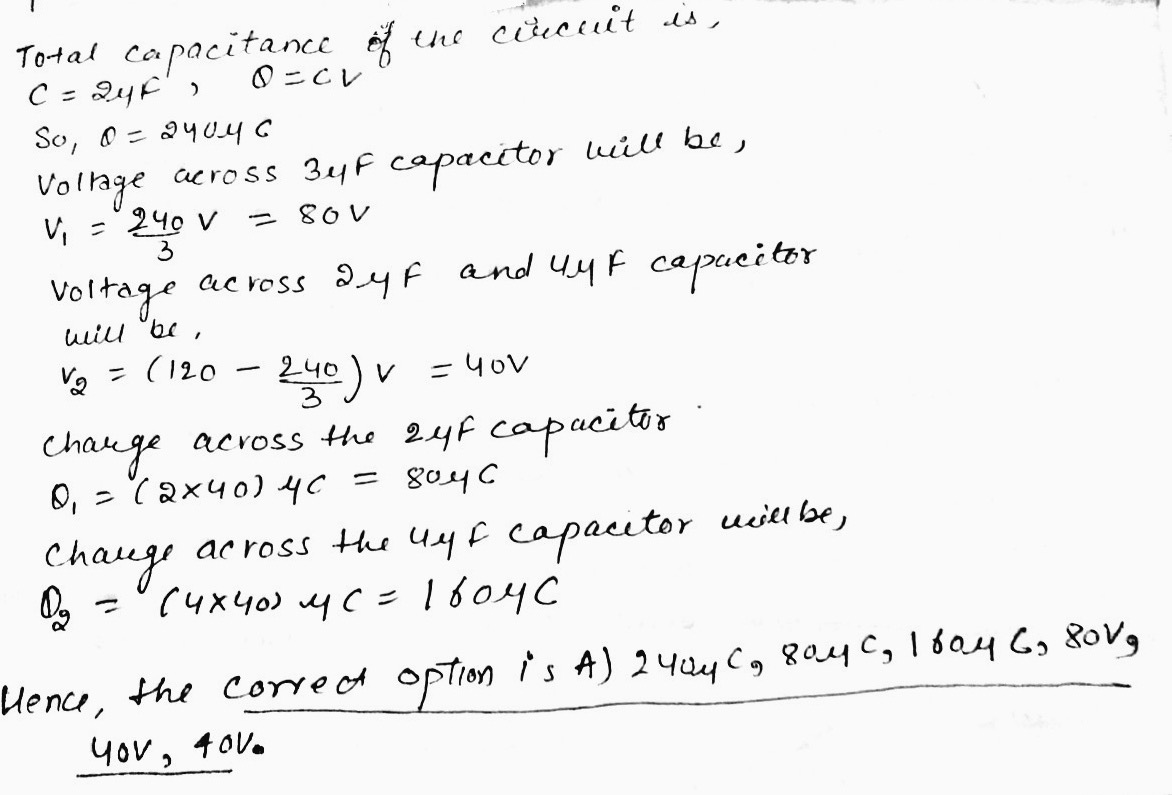 Total capacitance of the circuit is,
C = 2μF, Q = CV
So, Q = 240μC
Voltage across 3μF capacitor will be,
V₁ = 240/3 V = 80V
Voltage across 2μF and 4μF capacitor
will be,
V₂ = (120 - 240/3) V = 40V
Charge across the 2μF capacitor
Q₁ = (2×40) μC = 80μC
Charge across the 4μF capacitor will be,
Q₂ = (4×40) μC = 160μC
Hence, the correct option is A) 240μC, 80μC, 160μC, 80V,
40V, 40V.